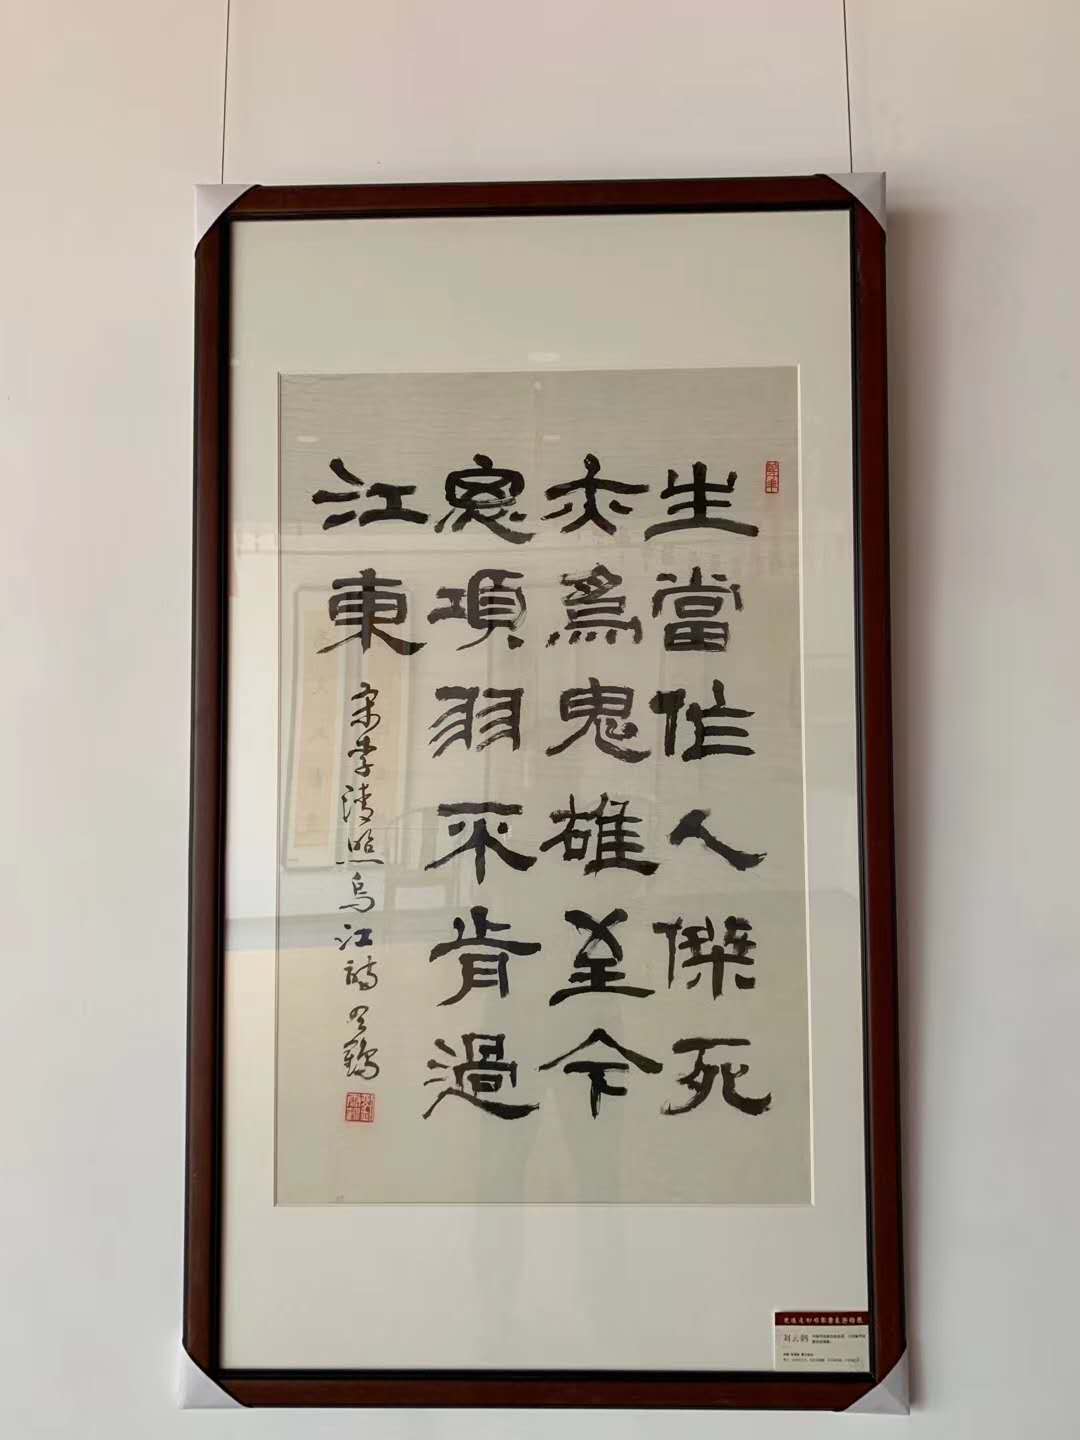 生當作人傑死
亦爲鬼雄至今
思項羽不肯過
江東
宋李清照烏江詩 雲鶴
刘云鹤